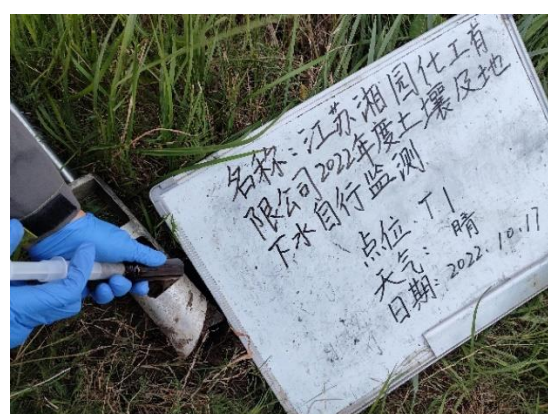 名称:江苏湘园化工有
限公司2022年度土壤及地
下水自行监测
点位:T1
天气:晴
日期:2022.10.17